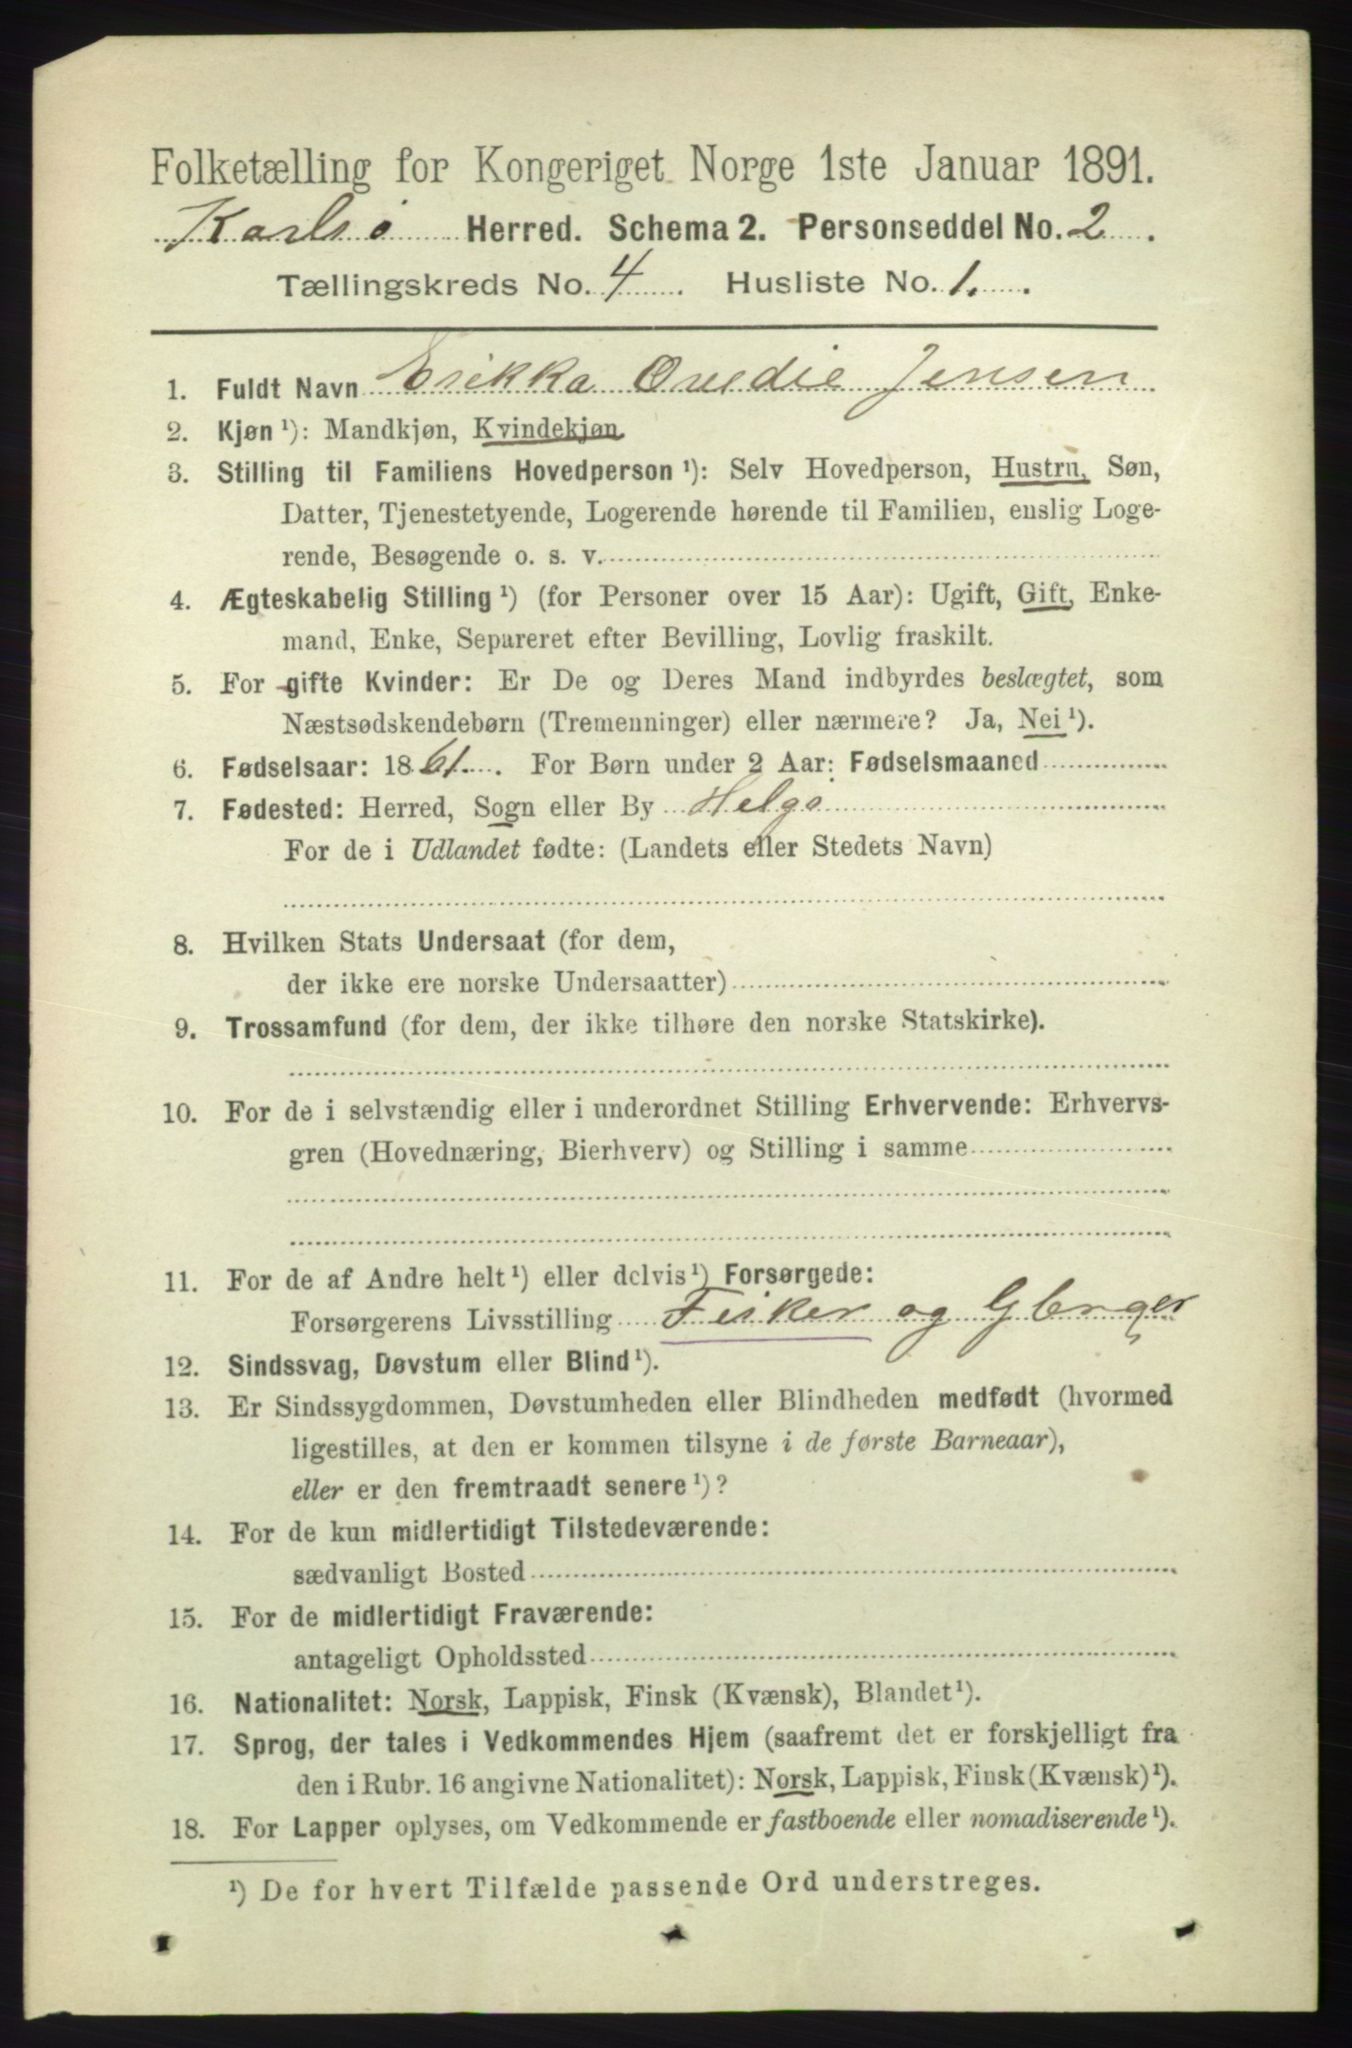 Folketælling for Kongeriget Norge 1ste Januar 1891.
Karlsø Herred. Schema 2. Personseddel No. 2.
Tællingskreds No. 4. Husliste No. 1.
1. Fuldt Navn Erikka Ovedie Jensen
2. Kjøn ¹): Mandkjøn, Kvindekjøn
3. Stilling til Familiens Hovedperson ¹): Selv Hovedperson, Hustru, Søn,
Datter, Tjenestetyende, Logerende hørende til Familien, enslig Loge-
rende, Besøgende o. s. v.
4. Ægteskabelig Stilling ¹) (for Personer over 15 Aar): Ugift, Gift, Enke-
mand, Enke, Separeret efter Bevilling, Lovlig fraskilt.
5. For gifte Kvinder: Er De og Deres Mand indbyrdes beslægtet, som
Næstsødskendebørn (Tremenninger) eller nærmere? Ja, Nei ¹).
6. Fødselsaar: 1861. For Børn under 2 Aar: Fødselsmaaned
7. Fødested: Herred, Sogn eller By Helgø
For de i Udlandet fødte: (Landets eller Stedets Navn)
8. Hvilken Stats Undersaat (for dem,
der ikke ere norske Undersaatter)
9. Trossamfund (for dem, der ikke tilhøre den norske Statskirke).
10. For de i selvstændig eller i underordnet Stilling Erhvervende: Erhvervs-
gren (Hovednæring, Bierhverv) og Stilling i samme
11. For de af Andre helt ¹) eller delvis ¹) Forsørgede:
Forsørgerens Livsstilling Fisker og
12. Sindssvag, Døvstum eller Blind ¹).
13. Er Sindssygdommen, Døvstumheden eller Blindheden medfødt (hvormed
ligestilles, at den er kommen tilsyne i de første Barneaar),
eller er den fremtraadt senere ¹)?
14. For de kun midlertidigt Tilstedeværende:
sædvanligt Bosted
15. For de midlertidigt Fraværende:
antageligt Opholdssted
16. Nationalitet: Norsk, Lappisk, Finsk (Kvænsk), Blandet ¹).
17. Sprog, der tales i Vedkommendes Hjem (saafremt det er forskjelligt fra
den i Rubr. 16 angivne Nationalitet): Norsk, Lappisk, Finsk (Kvænsk) ¹).
18. For Lapper oplyses, om Vedkommende er fastboende eller nomadiserende ¹).
¹) De for hvert Tilfælde passende Ord understreges.